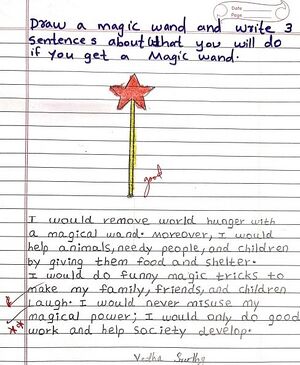 Date
Page
Draw a magic wand and write 3
sentences about What you will do
if you get a Magic wand.
good
I would remove world hunger with
a magical wand. Moreover, I would
help animals, needy people, and children
by giving them food and shelter.
I would do funny magic tricks to
make my family, friends, and children
Laugh. I would never misuse my
magical power; I would only do good
work and help society develop.